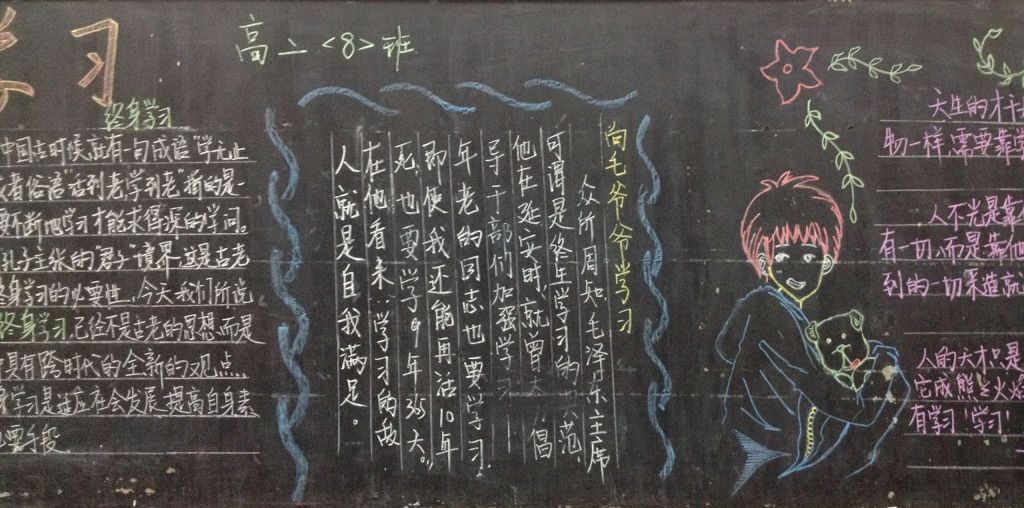 学习
高二<8>班
终身学习
中国古时侯就有一句成语"学无止
或者俗语"活到老学到老"指的是一
要不断地学习才能求得渊的学问。
孔子主张的"君子"境界.这是古老
终身学习的必要性,今天我们所说
终身学习,已经不是古老的思想,而是
具有跨时代的全新的观点.
学习是适应社会发展,提高自身素
要手段
向毛爷爷学习
众所周知,毛泽东主席
可谓是终生学习的 范,
他在延安时,就曾 倡
导干部们加强学习
年老的同志也要学习.
即使我还能再活10年
死,也要学9年365天。"
在他看来:学习的敌
人就是自我满足。
天生的才干
物一样,需要靠学
人不光是靠
有一切,而是靠他
到的一切来造就
人的天才只是
它成熊 火焰
有学习!学习!